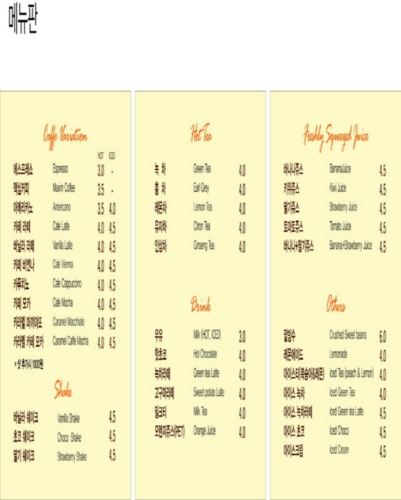 메뉴판
Caffe Variation
HOT ICED
에스프레소 Espresso 3.0 -
맥심커피 Maxim Coffee 3.5 -
아메리카노 Americano 3.5 4.0
카페 라떼 Cafe Latte 4.0 4.5
바닐라 라떼 Vanilla Latte 4.0 4.5
카페 비엔나 Cafe Vienna 4.0 4.5
카푸치노 Cafe Cappuccino 4.0 4.5
카페 모카 Cafe Mocha 4.0 4.5
카라멜 마끼아또 Caramel Macchiato 4.0 4.5
카라멜 카페 모카 Caramel Caffe Mocha 4.0 4.5
+ 샷 추가시 1000원
Shake
바닐라 쉐이크 Vanilla Shake 4.5
초코 쉐이크 Choco Shake 4.5
딸기 쉐이크 Strawberry Shake 4.5
Hot Tea
녹 차 Green Tea 4.0
홍 차 Earl Grey 4.0
레몬차 Lemon Tea 4.0
유자차 Citron Tea 4.0
인삼차 Ginseng Tea 4.0
Drink
우유 Milk (HOT, ICED) 3.0
핫초코 Hot Chocolate 4.0
녹차라떼 Green tea Latte 4.0
고구마라떼 Sweet potato Latte 4.0
밀크티 Milk Tea 4.0
오렌지쥬스(PET) Orange Juice 4.0
Freshly Squeezed Juice
바나나쥬스 BananaJuice 4.5
키위쥬스 Kiwi Juice 4.5
딸기쥬스 Strawberry Juice 4.5
토마토쥬스 Tomato Juice 4.5
바나나+딸기쥬스 Banana+Strawberry Juice 4.5
Others
팥빙수 Crushed Sweet beans 6.0
레몬에이드 Lemonade 4.0
아이스티(복숭아&레몬) Iced Tea (peach & Lemon) 4.0
아이스 녹차 Iced Green Tea 4.0
아이스 녹차라떼 Iced Green tea Latte 4.5
아이스 초코 Iced Choco 4.5
아이스크림 Iced Cream 4.5